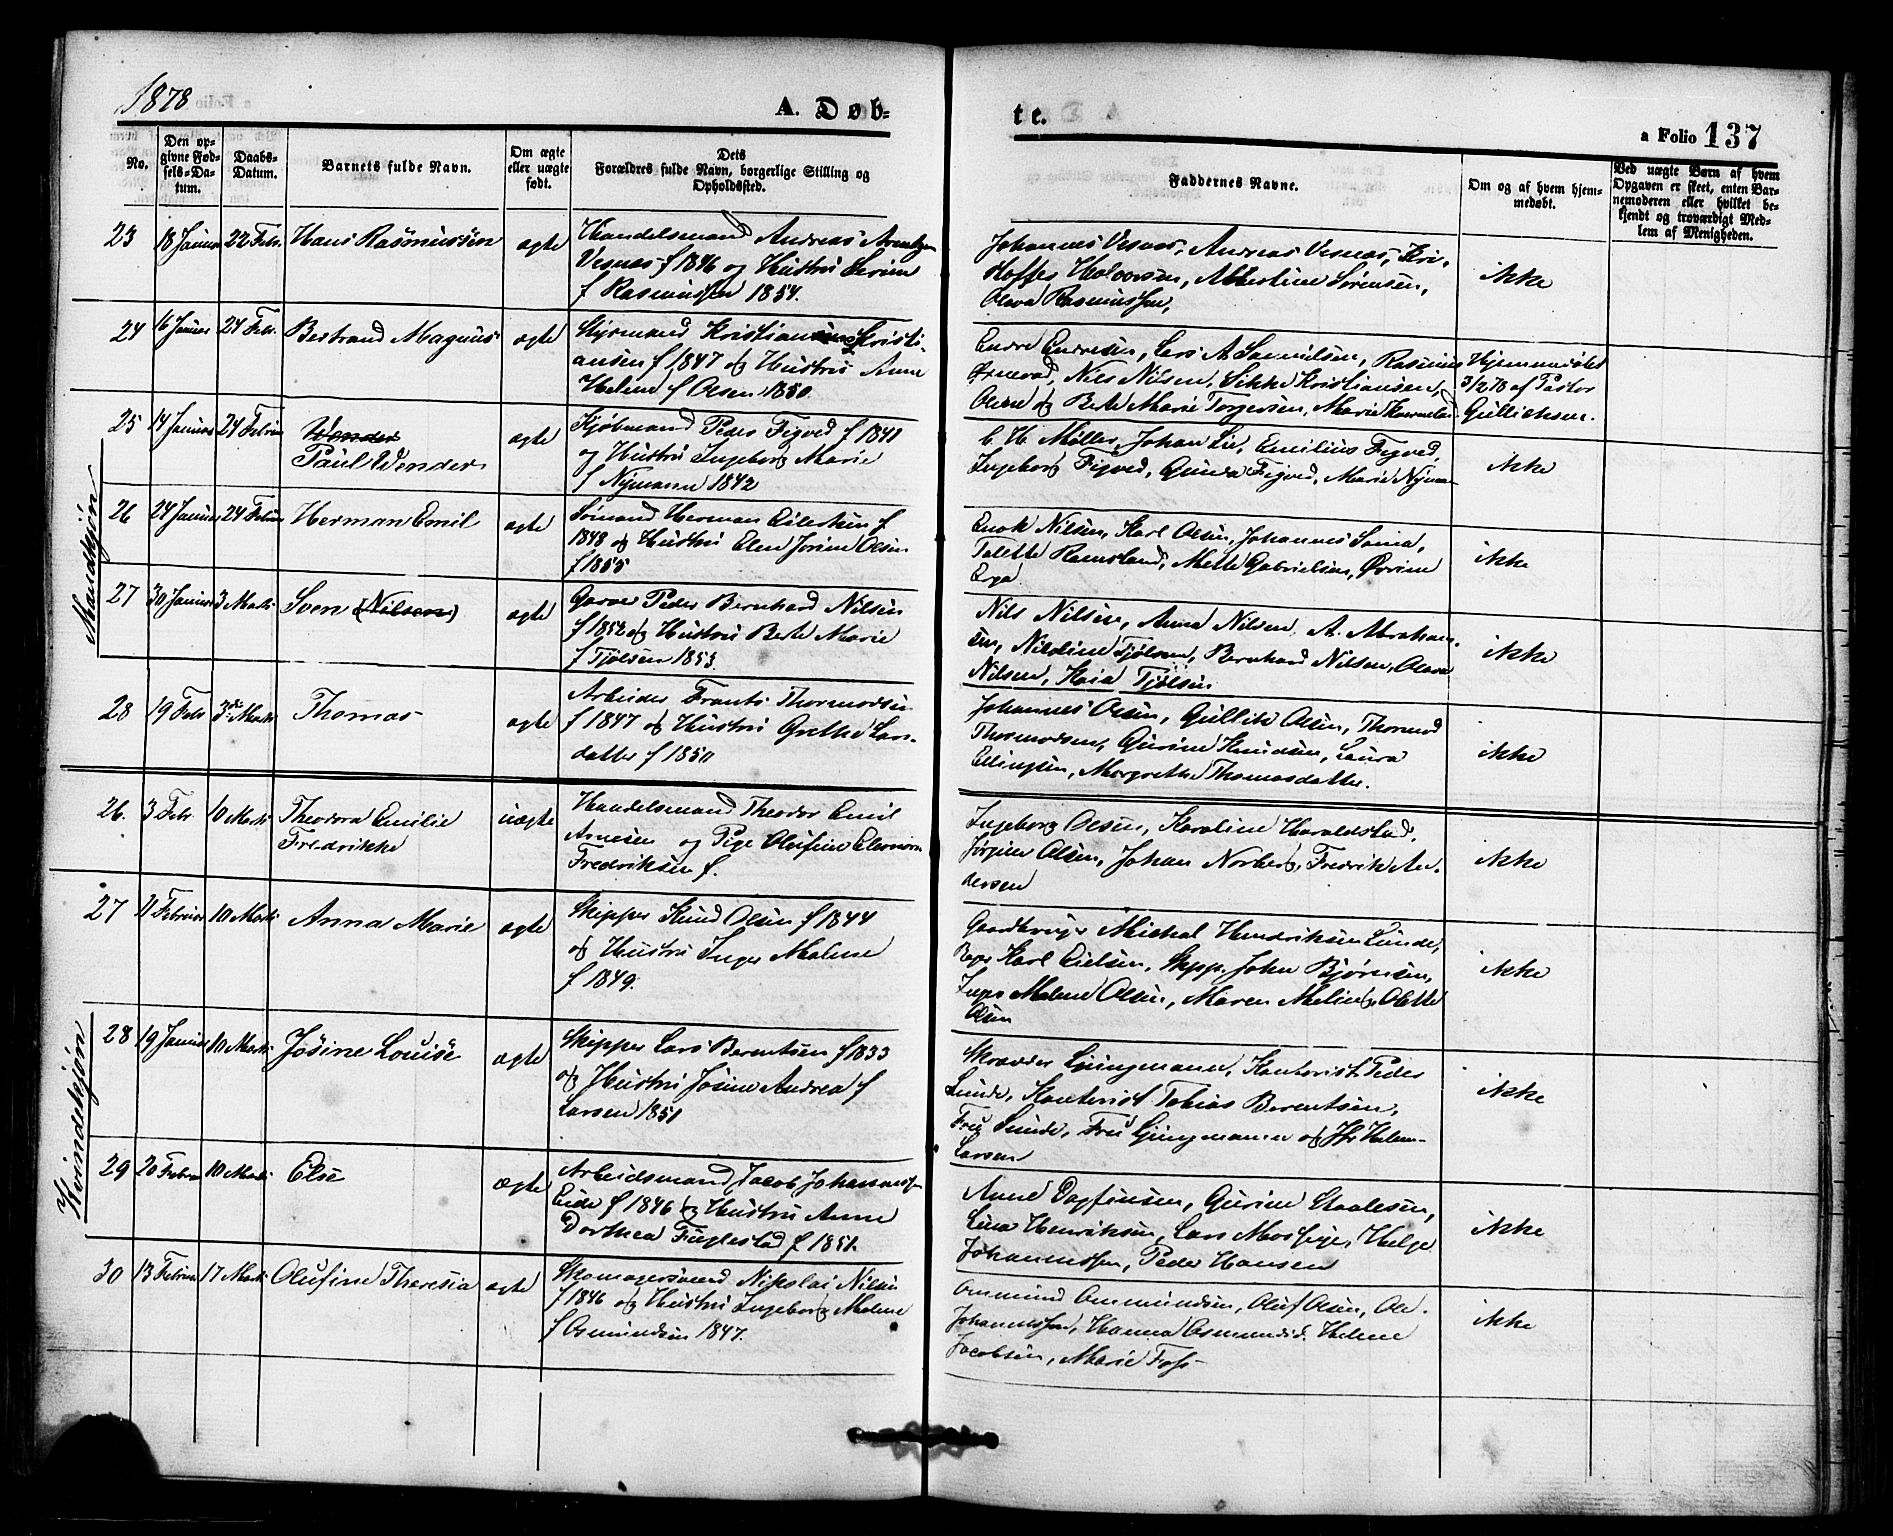 1878
A. Døb-
te.
a Folio 137
No.
Den op-
givne Fød-
sels-Da-
tum.
Daabs-
Datum.
Barnets fulde Navn.
Om ægte
eller uægte
født.
Dets
Forældres fulde Navn, borgerlige Stilling og
Opholdssted.
Faddernes Navne.
Om og af hvem hjem-
medøbt.
Ved uægte Børn af hvem
Opgaven er skeet, enten Bar-
nemoderen eller hvilket be-
kjendt og troværdigt Med-
lem af Menigheden.
Mandkjøn
23 18 Januar 22 Febr. Hans Rasmussen ægte
Handelsmand Andreas
Vesnes f 1846 og Hustru Serine
f Rasmussen 1854.
Johannes Vesnes, Andreas Vesnes, Kri-
stoffer Halvorsen, Albertine Sørensen,
Olava Rasmussen,
ikke
24 16 Januar 24 Febr. Bertrand Magnus ægte
Styrmand Kristian Kristi-
ansen f 1847 og Hustru Anne
Helene f Olsen 1850
Endre Endresen, Lars A. Samuelsen, Rasmus
Nils Nilsen, Sikke Kristiansen,
Olene og Berte Marie Torgersen, Marie
Hjemmedøbt
3/2 78 af Pastor
Gullichsen.
25 14 Januar 24 Februar Wender
Paul Wender ægte
Kjøbmand Peder Figved f 1841
og Hustru Ingeborg Marie
f Nymann 1842
C. H. Møller, Johan Lie, Emilius Figved,
Ingeborg Figved, Gunda Figved, Marie Nyman
ikke
26 24 Januar 24 Februar Herman Emil ægte
Sømand Herman Eilertsen f
1848 og Hustru Elen Jorine Olsen
f 1855
Enok Nilsen, Karl Olsen, Johannes Soma,
Talette Ramsland, Mette Gabrielsen, Øvrine
Erga
ikke
27 30 Januar 3 Marts Sven (Nilsen) ægte
Garver Peder Bernhard Nilsen
f 1852 og Hustru Berte Marie
f Tjølsen 1853.
Nils Nilsen, Anna Nilsen, A. Abraham-
sen, Nikoline Tjølsen, Bernhard Nilsen, Olava
Nilsen, Kaia Tjølsen
ikke
28 19 Febr 3die Marts Thomas ægte
Arbeider Frants Thormodsen
f 1847 og Hustru Grethe Lars-
datter f 1850
Johannes Olsen, Gullik Olsen, Thormod
Thormodsen, Gurine Knudsen, Laura
Ellingsen, Margrethe Thomasdatter.
ikke
Kvindekjøn
26. 3 Febr. 10 Marts Theodora Emilie
Fredrikke uægte
Handelsmand Theodor Emil
Arnesen og Pige Olufine Eleonora
Fredriksen f.
Ingeborg Olsen, Karoline Haraldstad,
Jørgine Olsen, Johan Norberg, Fredrik An-
dersen
ikke
27 11 Februar 10 Marts Anna Marie ægte
Skipper Knud Olsen f 1844
og Hustru Inger Malene
f 1849.
Gaardbruger Michal Hendriksen Lunde,
Karl Eielsen, Skipp. John Bjørnsen,
Inger Malene Olsen, Maren Melin, Olette
Olsen
ikke
28 19 Januar 10 Marts Josine Louise ægte
Skipper Lars Berentsen f 1833
og Hustru Josine Andrea f
Larsen 1851
Skrædder Ljungmann, Kontorist Peder
Lunde, Kontorist Tobias Berentsen,
Fru Lunde, Fru Ljungmann og Helene
Larsen
ikke
29 20 Februar 10 Marts Else ægte
Arbeidsmand Jacob Johannessen
Eide f 1846 og Hustru Anne
Dorthea Fuglestad f 1851.
Anne Dagfinsen, Gurine Staalesen,
Lina Henriksen, Lars Mosfeje, Helge
Johannessen, Peder Hansen
ikke
30 13 Februar 17 Marts Olufine Theresia ægte
Skomagersvend Nikolai Nilsen
f 1846 og Hustru Ingeborg Malene
f Osmundsen 1847.
Ommund Ommundsen, Oluf Olsen, Ole
Johannessen, Hanna Osmundsd. Helene
Jacobsen, Marie Foss
ikke